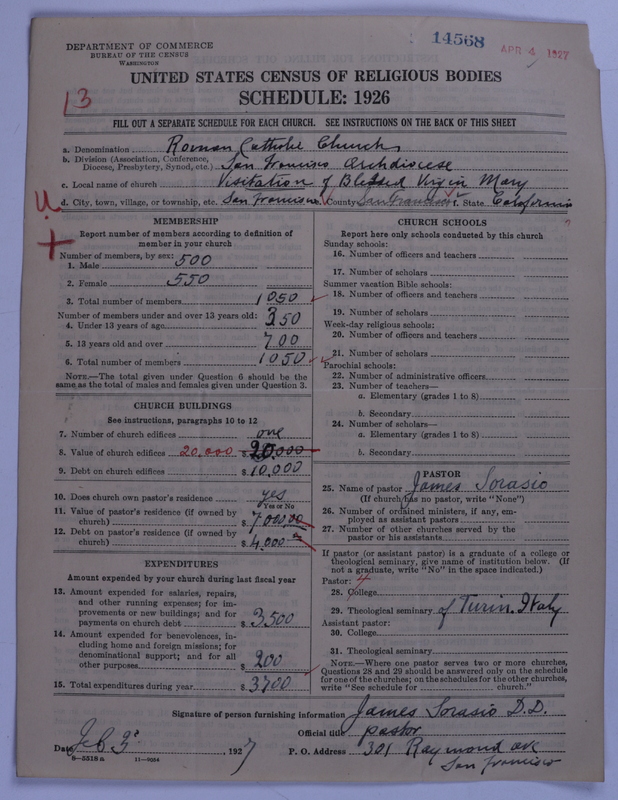 14568
APR 4 1927
DEPARTMENT OF COMMERCE
BUREAU OF THE CENSUS
WASHINGTON
UNITED STATES CENSUS OF RELIGIOUS BODIES
SCHEDULE: 1926
13
FILL OUT A SEPARATE SCHEDULE FOR EACH CHURCH. SEE INSTRUCTIONS ON THE BACK OF THIS SHEET
a. Denomination Roman Catholic Church
b. Division (Association, Conference, Diocese, Presbytery, Synod, etc.) San Francisco Archdiocese
c. Local name of church Visitation of Blessed Virgin Mary
d. City, town, village, or township, etc. San Francisco e. County San Francisco f. State California
U.
MEMBERSHIP
Report number of members according to definition of
member in your church
Number of members, by sex:
1. Male 500
2. Female 550
3. Total number of members 1050
Number of members under and over 13 years old:
4. Under 13 years of age 350
5. 13 years old and over 700
6. Total number of members 1050
NOTE.—The total given under Question 6 should be the
same as the total of males and females given under Question 3.
CHURCH BUILDINGS
See instructions, paragraphs 10 to 12
7. Number of church edifices one
8. Value of church edifices 20.000 $ 20,000
9. Debt on church edifices $ 10,000
10. Does church own pastor's residence yes
Yes or No
11. Value of pastor's residence (if owned by
church) $ 7000.00
12. Debt on pastor's residence (if owned by
church) $ 4,000
EXPENDITURES
Amount expended by your church during last fiscal year
13. Amount expended for salaries, repairs,
and other running expenses; for im-
provements or new buildings; and for
payments on church debt $ 3,500
14. Amount expended for benevolences, in-
cluding home and foreign missions; for
denominational support; and for all
other purposes $ 200
15. Total expenditures during year $ 3700
CHURCH SCHOOLS
Report here only schools conducted by this church
Sunday schools:
16. Number of officers and teachers
17. Number of scholars
Summer vacation Bible schools:
18. Number of officers and teachers
19. Number of scholars
Week-day religious schools:
20. Number of officers and teachers
21. Number of scholars
Parochial schools:
22. Number of administrative officers
23. Number of teachers—
a. Elementary (grades 1 to 8)
b. Secondary
24. Number of scholars—
a. Elementary (grades 1 to 8)
b. Secondary
PASTOR
25. Name of pastor James Sorasio
(If church has no pastor, write "None")
26. Number of ordained ministers, if any, em-
ployed as assistant pastors
27. Number of other churches served by the
pastor or his assistants
If pastor (or assistant pastor) is a graduate of a college or
theological seminary, give name of institution below. (If
not a graduate, write "No" in the space indicated.)
Pastor: 4
28. College
29. Theological seminary of Turin. Italy
Assistant pastor:
30. College
31. Theological seminary
NOTE.—Where one pastor serves two or more churches,
Questions 28 and 29 should be answered only on the schedule
for one of the churches; on the schedules for the other churches,
write "See schedule for church."
Signature of person furnishing information James Sorasio D.D.
Official title pastor
Date Feb 3d, 1927 P. O. Address 301 Raymond ave
San Francisco
8—5518a 11—9084